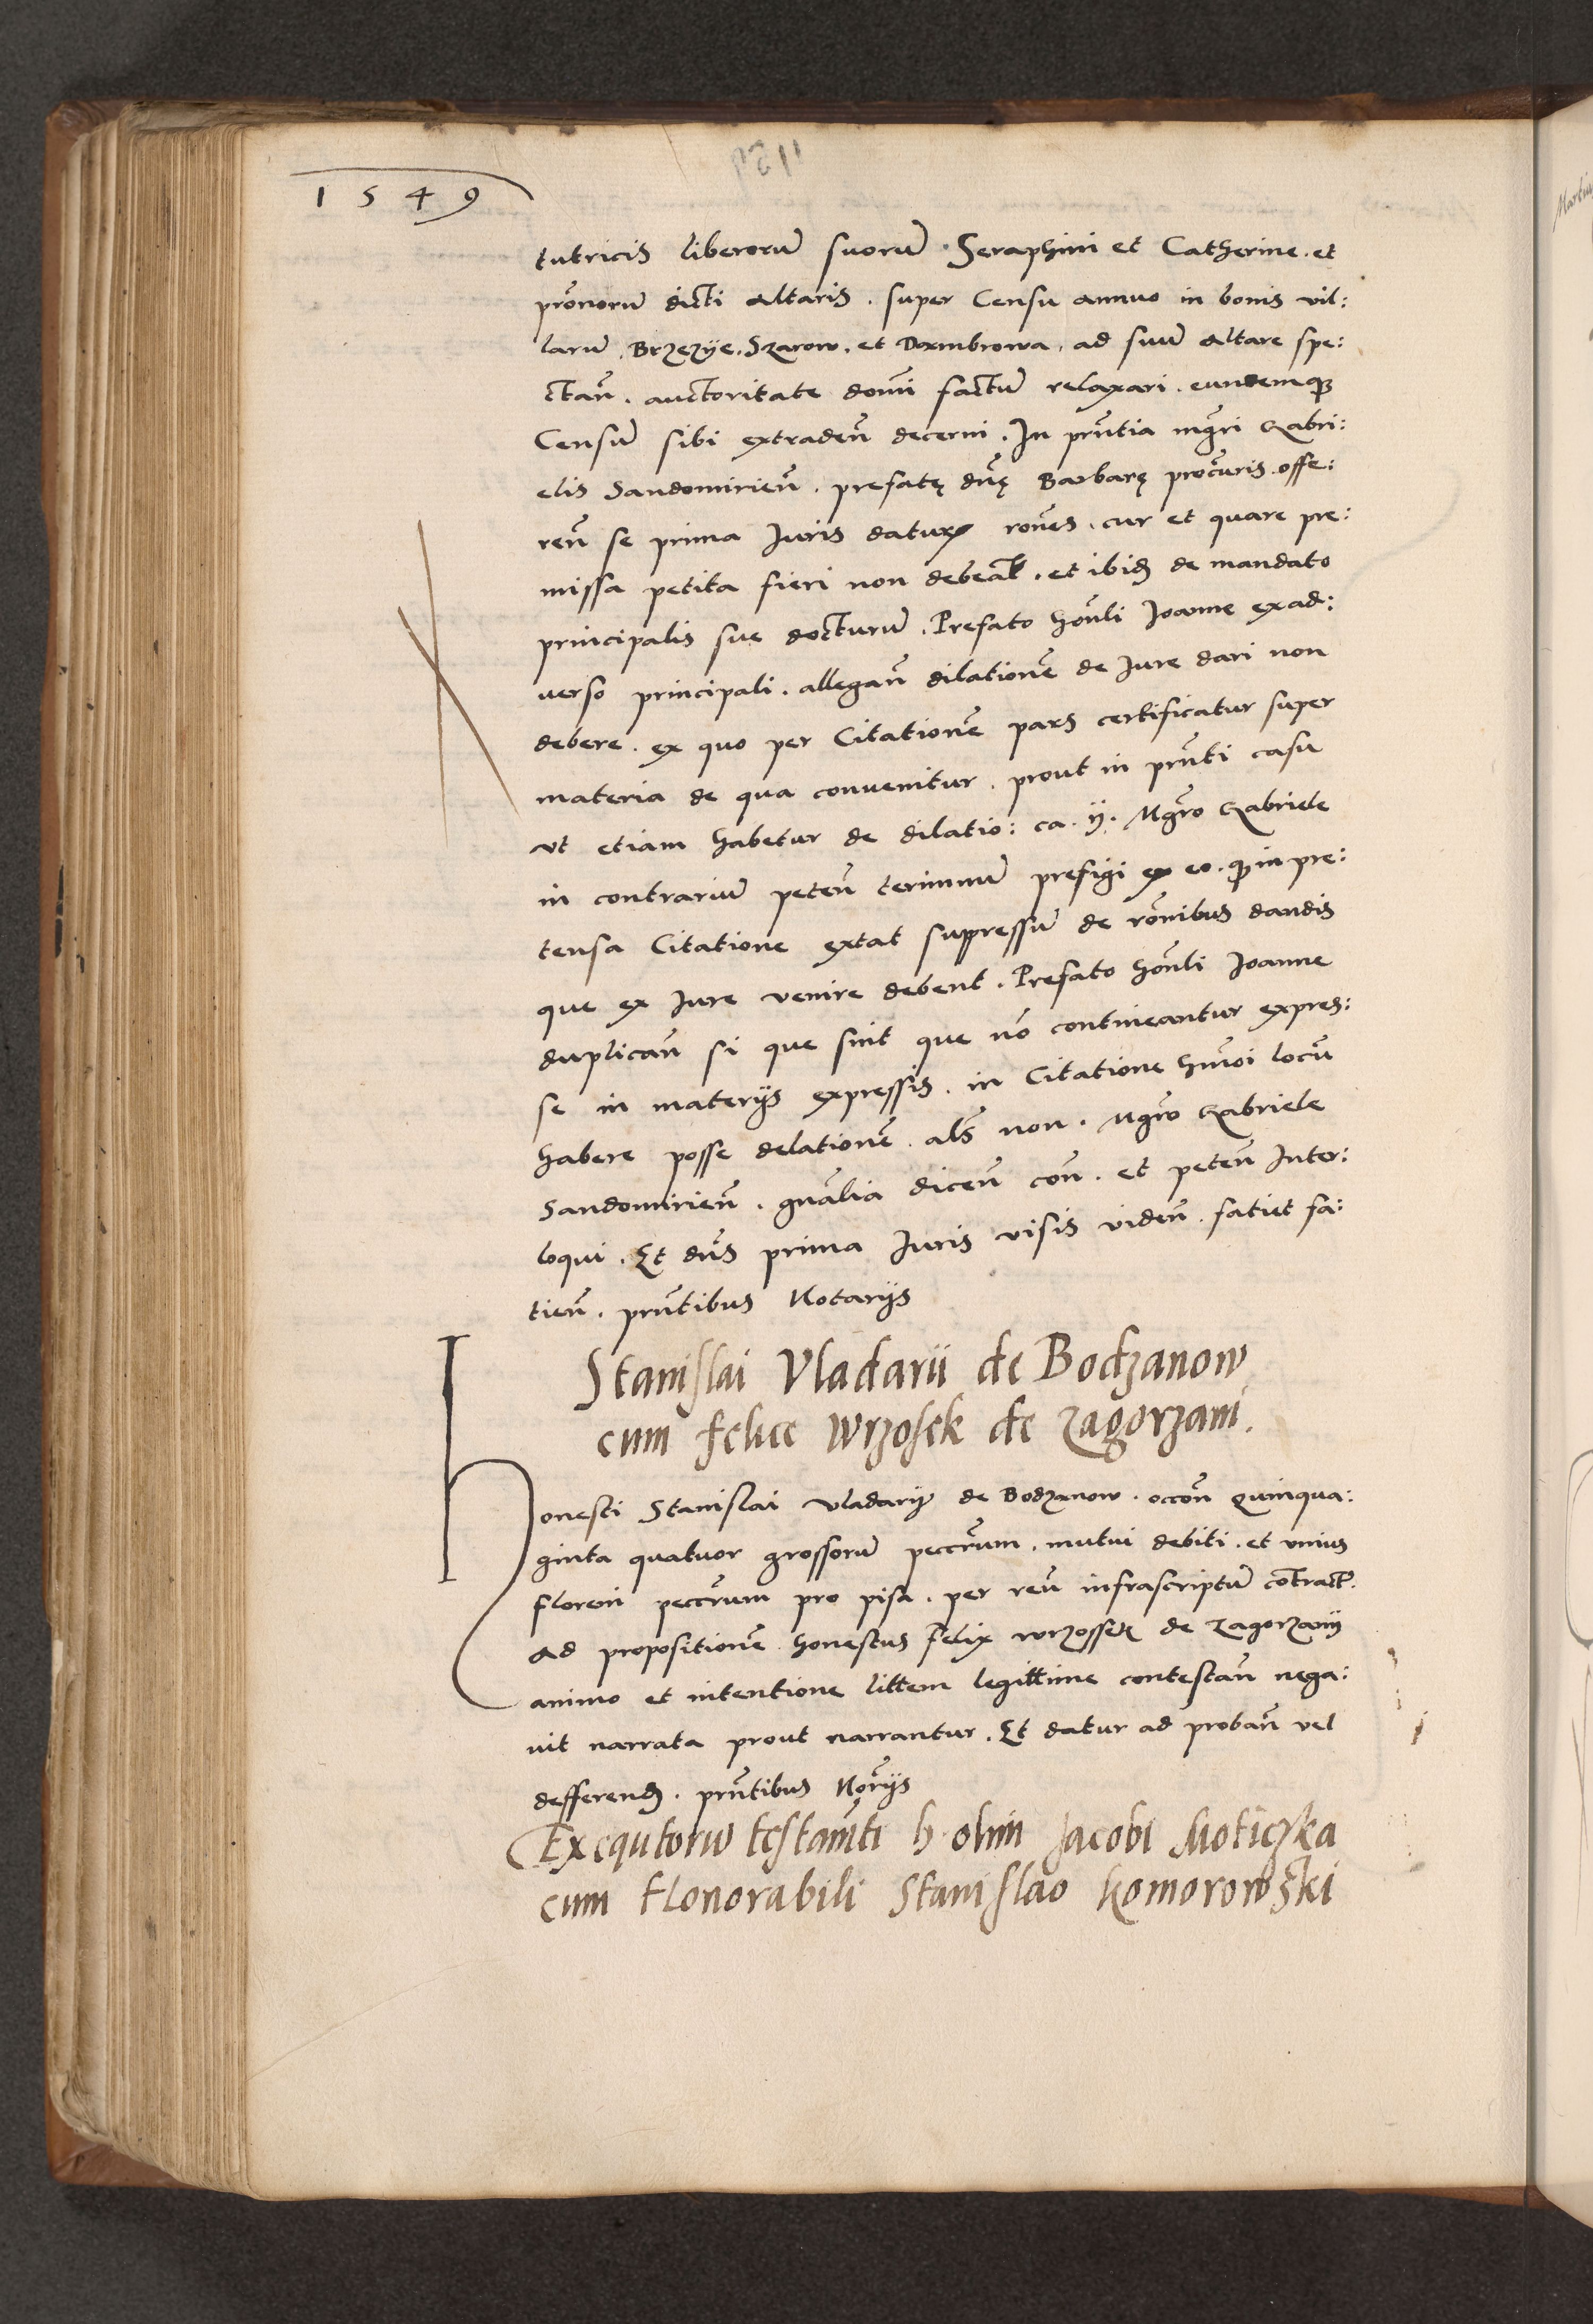 1549
tutricis liberorū suorū. Seraphini et Catherine. et
prōnorū dicti altaris. super Censu annuo in bonis vil:
larū. Brzezÿe. Szarow. et Dambrowa. ad suū altare spe:
ctañ. auctoritate domī factū relaxari. eundemqȝ
Censū sibi extradeñ decerni. In pn̄tia mgr̄i Gabri:
elis Sandomirieñ. prefatę dn̄ę Barbarę procūris. offe:
reñ se prima Iuris daturū rōnes. cur et quare pre:
missa petita fieri non debeāt. et ibidȝ de mandato
principalis sue docturū. Prefato hōnli Joanne ex ad:
uerso principali. allegañ dilationē de Jure dari non
debere. ex quo per Citationē pars certificatur super
materia de qua convenitur. prout in prn̄ti casu
vt etiam habetur de dilatio: ca. ij. Mgrō Gabriele
in contrariū peteñ terminū prefigi ex eo. qȝ in pre:
tensa Citatione extat suppressū de rōnibus dandis
que ex Jure venire debent. Prefato hōnli Joanne
duplicañ si que sint que nō contineantur expres:
se in materijs expressis. in Citatione hm̄oi locū
habere posse delationē. als̄ non. Mgrō Gabriele
Sandomirieñ. gnālia diceñ coñ. et peteñ Inter:
loqui. Et dn̄s prima Juris visis videñ. fatiet fa:
tieñ. prn̄tibus Notarijs
Stanislai Vladarii de Bodzanow
cum felice Wrzosek de Zagorzani.
Honesti Stanislai vladarij de Bodzanow. occoñ Quinqua:
ginta quatuor grossorū peccrūm. mutui debiti. et vnius
floreni peccrūm pro pisa. per reū infrascriptū contract̄.
Ad propositionē honestus felix wrzossek de Zagorzanij
animo et intentione littem legittime contestañ nega:
uit narrata prout narrantur. Et datur ad probañ vel
defferendȝ. prn̄tibus Norījs
Exequtorū testam̄ti h. olim Jacobi Moticzka
cum Honorabili Stanislao Komorowski